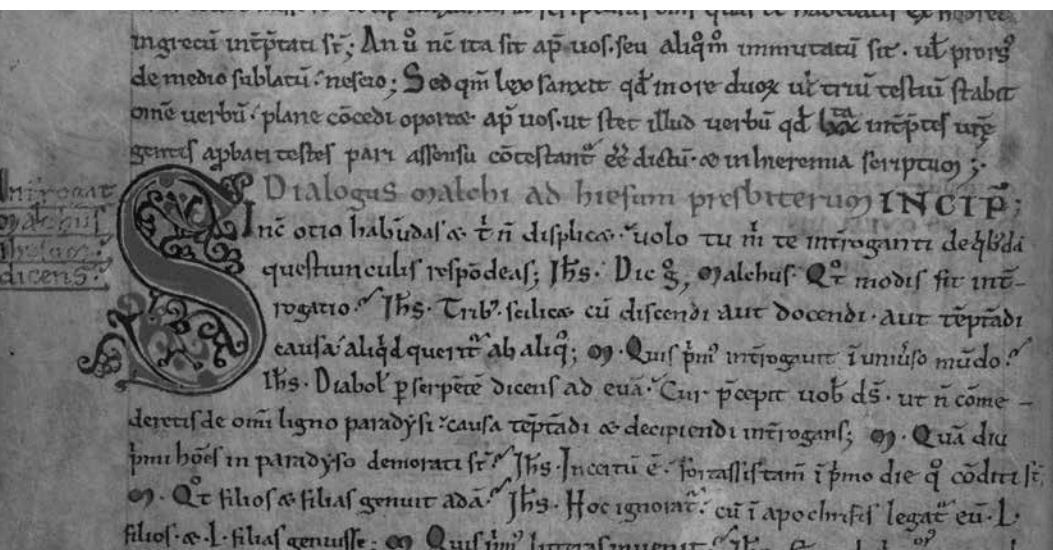 ingrecū int̄p̄tati st̄; An ů nc̄ ita sit ap̄ uos. seu aliqm̄ immutatū sit. ul̄ prorsꝰ
de medio sublatū. nescio; Sed qm̄ lex sanxit qd̄ in ore duoꝝ ul̄ triū testiū stabit
om̄e uerbū. plane cōcedi oportet ap̄ uos. ut stet illud uerbū qd̄ lxx int̄p̄tes urę̄
gentis ap̱bati testes pari assensu cōtestant̄ eē̄ dictū. & in hieremia scriptum;.
Dialogus malchi ad hiesum presbiterum INCIP̄;
Int̄rogat
malchus
dicens.
Sinc̄ otio habūdas & t̄ n̄ displicet. uolo tu m̄ te int̄roganti de qͥbꝰdā
questiunculis respōdeas; Ih̄s. Dic g̊, Malchus. Qͦt modis fit int̄-
rogatio. Ih̄s. Tribꝰ. scilicet cū discendi aut docendi. aut tēptādi
causa aliqͥd querit̄ ab aliqͦ; M. Quis p̄mꝰ int̄rogauit ī uniuso mūdo.
Ih̄s. Diabol̄ ꝑ serpētē dicens ad euā. Cur p̄cepit uob̄ ds̄. ut n̄ cōme-
deretis de omī ligno paradẏsi. causa tēptādi & decipiendi int̄rogans; M. Quā diu
p̄mi hōēs in paradẏso demorati st̄. Ih̄s. Incertū ē. fortassis tam̄ ī p̄mo die qͦ cōditi st̄;
M. Qͦt filios & filias genuit adā. Ih̄s. Hoc ignorat̄. cū ī apochrifis legat̄ eū. L.
filios. &. L. filias genuisse. M. Quis p̄mꝰ litteras inuenit. Ih̄s.